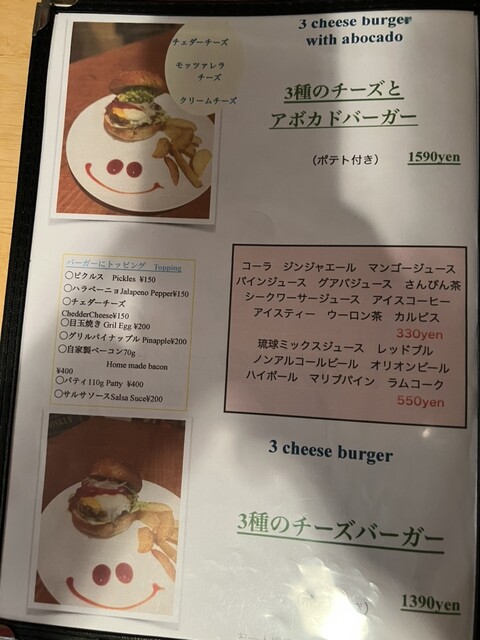 チェダーチーズ
モッツァレラ
チーズ
クリームチーズ
3 cheese burger
with abocado
3種のチーズと
アボカドバーガー
(ポテト付き) 1590yen
バーガーにトッピング Topping
○ピクルス Pickles ¥150
○ハラペーニョJalapeno Pepper¥150
○チェダーチーズ
ChedderCheese¥150
○目玉焼き Gril Egg ¥200
○グリルパイナップル Pinapple¥200
○自家製ベーコン70g
Home made bacon
¥400
○パティ110g Patty ¥400
○サルサソースSalsa Suce¥200
コーラ ジンジャエール マンゴージュース
パインジュース グアバジュース さんぴん茶
シークワーサージュース アイスコーヒー
アイスティー ウーロン茶 カルピス
330yen
琉球ミックスジュース レッドブル
ノンアルコールビール オリオンビール
ハイボール マリブパイン ラムコーク
550yen
3 cheese burger
3種のチーズバーガー
1390yen